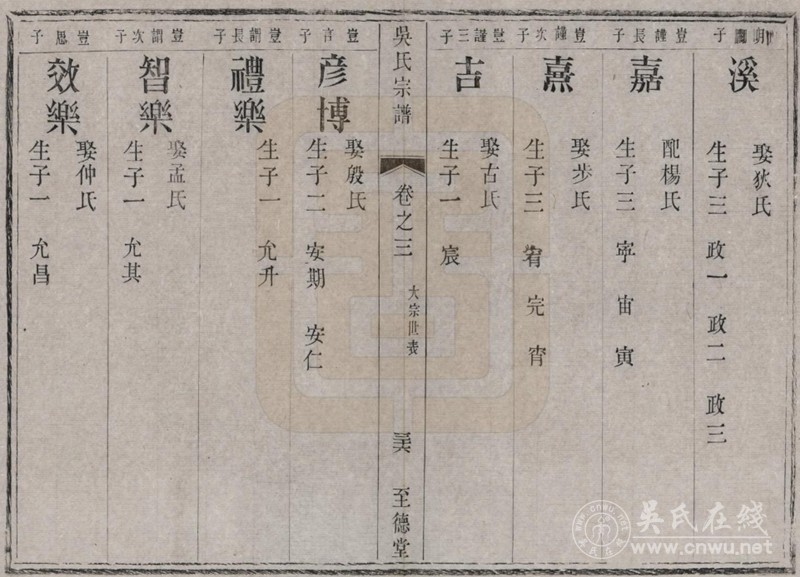 溪
娶狄氏
生子三 政一 政二 政三
豈鐘長子
嘉
配楊氏
生子三 宇宙寅
豈鐘次子
熹
娶步氏
生子三 宥完宵
豈謹三子
吉
娶古氏
生子一 宸
吳氏宗譜
卷之三
大宗世表
至德堂
豈言子
彦博
娶殷氏
生子二 安期 安仁
豈謂長子
禮樂
生子一 允升
豈謂次子
智樂
娶孟氏
生子一 允其
豈恩子
效樂
娶仲氏
生子一 允昌
吴氏在线
www.cnwu.net